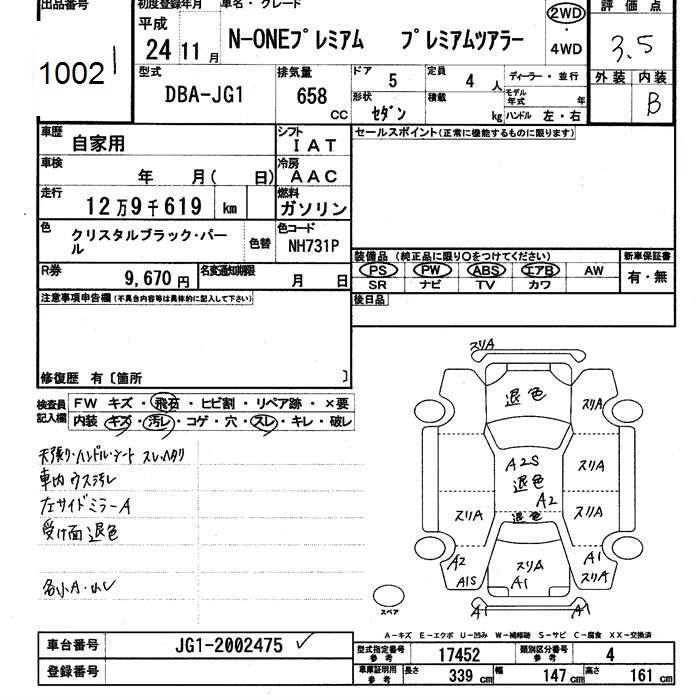 出品番号 初度登録年月 車名・グレード 2WD 評価点
1002 平成 24 11月 N-ONEプレミアム プレミアムツアラー 4WD 3.5
型式 排気量 ドア 5 定員 4人 ディーラー・並行 外装 内装
DBA-JG1 658 CC 形状 セダン 積載 kg モデル年式 年 ハンドル 左・右 B
車歴 自家用 シフト IAT セールスポイント(正常に機能するものに限ります)
車検 年 月( 日) 冷房 AAC
走行 12万9千619 km 燃料 ガソリン
色 クリスタルブラック・パール 色替 色コード NH731P
装備品 (純正品に限り○をつけてください) 新車保証書
PS PW ABS エアB AW 有・無
SR ナビ TV カワ
R券 9,670円 名変通知期限 月 日
後日品
注意事項申告欄(不具合内容等は具体的に記入して下さい)
修復歴 有〔箇所 〕
検査員記入欄 FW キズ・飛石・ヒビ割・リペア跡・×要
内装・キズ・汚レ・コゲ・穴・スレ・キレ・破レ
天張り・ハンドル・シート スレ、ヘタリ
車内 ウス汚レ
左サイドミラーA
受け面 退色
各小A・
スリA
退色 スリA
A2S 退色 A2 スリA
スリA 退色 スリA
A2 A1S スリA A1 A1 スリA
A1 A1
スペア
A-キズ E-エクボ U-凹み W-補修跡 S-サビ C-腐食 XX-交換済
車台番号 JG1-2002475 型式指定番号 参考 17452 類別区分番号 参考 4
登録番号 車庫証明用 参考 長さ 339cm 幅 147cm 高さ 161cm